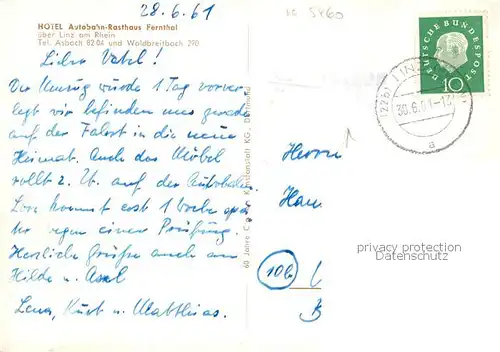 28.6.61
LC 5460
HOTEL Autobahn-Rasthaus Fernthal
über Linz am Rhein
Tel. Asbach 8204 und Waldbreitbach 290
Lieber Vatel!
Der Umzug wurde 1 Tag vorver-
legt wir befinden uns gerade
auf der Fahrt in die neue
Heimat. Auch das Möbel
rollt z. Zt. auf der Autobahn.
kommt erst 1 Woche spä
ter wegen einer Prüfung.
Herzliche Grüße auch an
Hilde u. Axel
Lena, Kurt u. Matthias.
60 Jahre Kunstanstalt KG., Dortmund
DEUTSCHE BUNDESPOST
10
(22b) LINZ
30.6.61-12
a
Herrn
Han
10b
B
privacy protection
Datenschutz